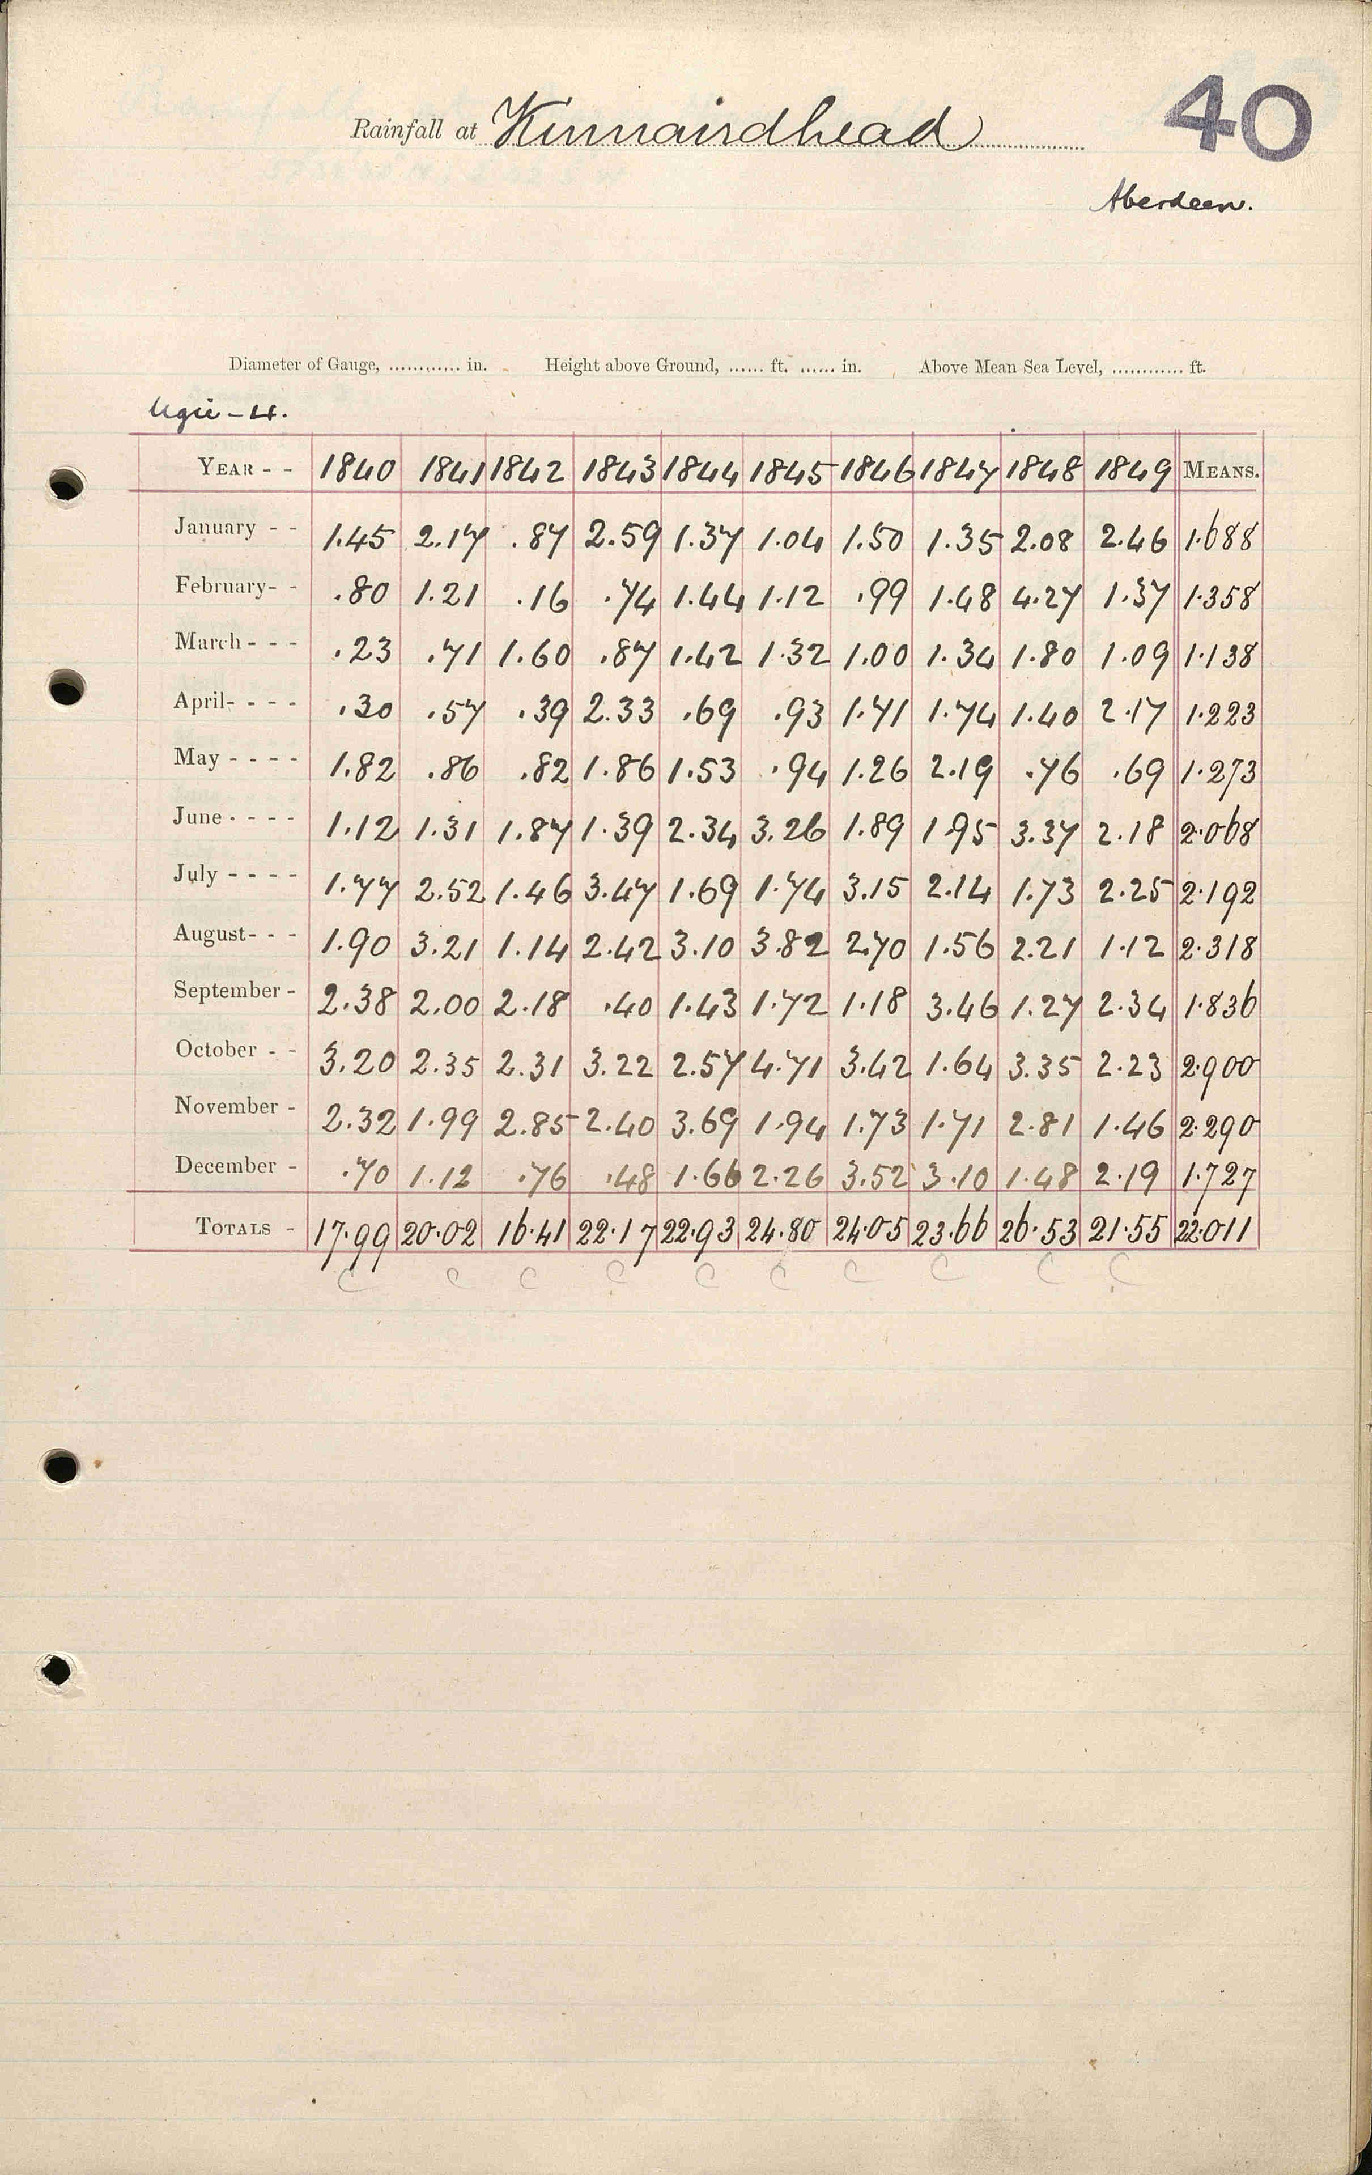 40
Rainfall at Kinnairdhead
Aberdeen.
Diameter of Gauge, ............ in. Height above Ground, ...... ft. ...... in. Above Mean Sea Level, ............ ft.
Ugie - 4.
YEAR - - 1840 1841 1842 1843 1844 1845 1846 1847 1848 1849 MEANS.
January - - 1.45 2.17 .87 2.59 1.37 1.04 1.50 1.35 2.08 2.46 1.688
February - - .80 1.21 .16 .74 1.44 1.12 .99 1.48 4.27 1.37 1.358
March - - - .23 .71 1.60 .87 1.42 1.32 1.00 1.34 1.80 1.09 1.138
April - - - - .30 .57 .39 2.33 .69 .93 1.71 1.74 1.40 2.17 1.223
May - - - - 1.82 .86 .82 1.86 1.53 .94 1.26 2.19 .76 .69 1.273
June - - - - 1.12 1.31 1.87 1.39 2.34 3.26 1.89 1.95 3.37 2.18 2.068
July - - - - 1.77 2.52 1.46 3.47 1.69 1.74 3.15 2.14 1.73 2.25 2.192
August - - - 1.90 3.21 1.14 2.42 3.10 3.82 2.70 1.56 2.21 1.12 2.318
September - 2.38 2.00 2.18 .40 1.43 1.72 1.18 3.46 1.27 2.34 1.836
October - - 3.20 2.35 2.31 3.22 2.57 4.71 3.42 1.64 3.35 2.23 2.900
November - 2.32 1.99 2.85 2.40 3.69 1.94 1.73 1.71 2.81 1.46 2.290
December - .70 1.12 .76 .48 1.66 2.26 3.52 3.10 1.48 2.19 1.727
TOTALS - 17.99 20.02 16.41 22.17 22.93 24.80 24.05 23.66 26.53 21.55 22.011
C C C C C C C C C C